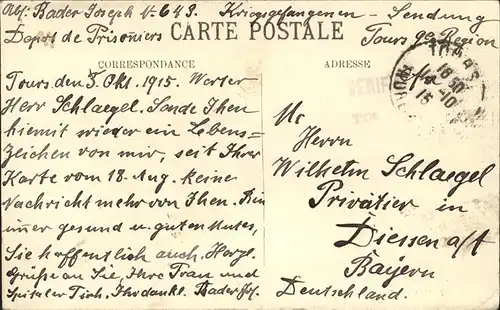 Abs: Bader Joseph No 643. Kriegsgefangenen - Sendung
Depot de Prisoniers CARTE POSTALE Tours 9e Region
CORRESPONDANCE
Tours den 3. Okt. 1915. Werter
Herr Schlaegel. Sende Ihen
hiemit wieder ein Lebens=
zeichen von mir, seit Ihrer
Karte vom 18. Aug. keine
Nachricht mehr von Ihen. Bin
immer gesund u. guten Mutes,
Sie hoffentlich auch. Herzl.
Grüße an Sie, Ihre Frau und
Ihr dankb. Bader Jos.
ADRESSE
TOURS
18 50
-10
15
Herrn
Wilhelm Schlaegel
Privatier in
Diessen a/A
Bayern
Deutschland.